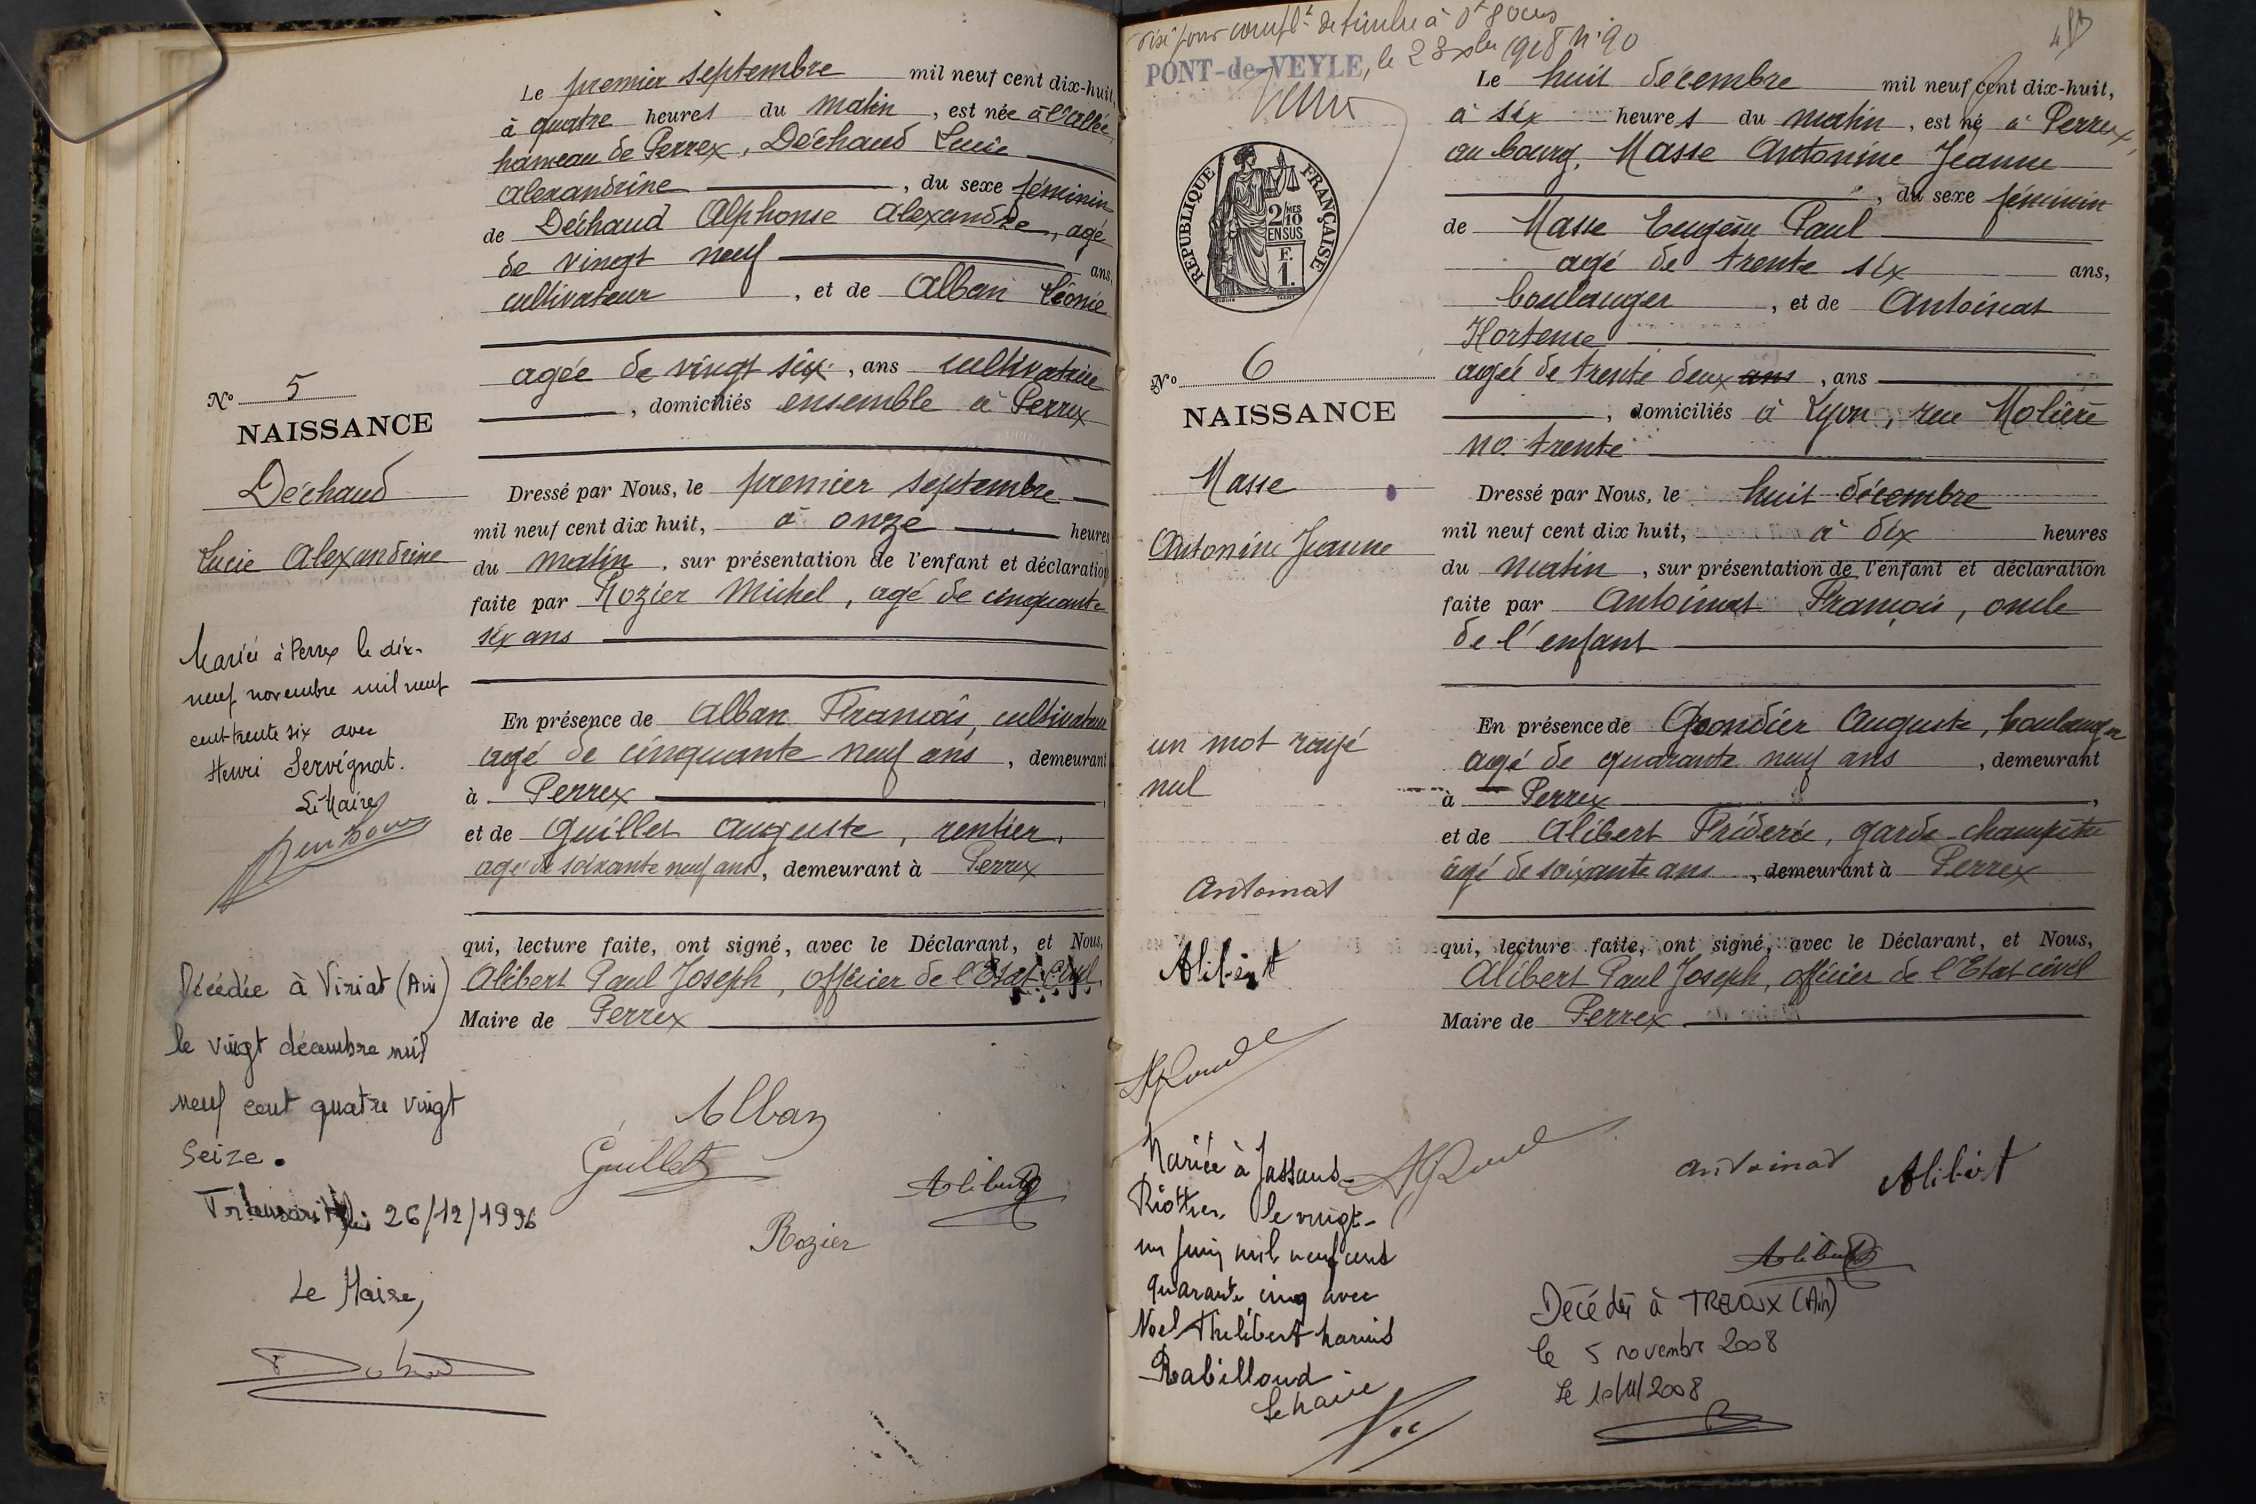 Le premier septembre mil neuf cent dix-huit,
à quatre heures du matin, est née à l'allée,
hameau de Perrex, Déchaud Lucie
Alexandrine, du sexe féminin
de Déchaud Alphonse Alexandre, agé
de vingt neuf ans,
cultivateur, et de Alban Léonie
agée de vingt six, ans cultivatrice
, domiciliés ensemble à Perrex
No 5
NAISSANCE
Déchaud
Lucie Alexandrine
Dressé par Nous, le premier septembre
mil neuf cent dix huit, à onze heures
du matin, sur présentation de l'enfant et déclaration
faite par Rozier Michel, agé de cinquante
six ans
En présence de Alban François, cultivateur
agé de cinquante neuf ans, demeurant
à Perrex
et de Guillet Auguste, rentier,
agé de soixante neuf ans, demeurant à Perrex
qui, lecture faite, ont signé, avec le Déclarant, et Nous,
Alibert Paul Joseph, officier de l'Etat Civil,
Maire de Perrex
Mariée à Perrex le dix-
neuf novembre mil neuf
cent trente six avec
Henri Servignat.
Le Maire
Décédée à Viriat (Ain)
le vingt décembre mil
neuf cent quatre vingt
seize.
26/12/1996
Le Maire,
Alban
Guillet
Alibert
Rozier
visé pour de timbre à
PONT-de-VEYLE, le 23 xbre 1918 N° 90
RÉPUBLIQUE FRANÇAISE
2/10 MES
EN SUS
F.
1.
No 6
NAISSANCE
Masse
Antonine Jeanne
un mot rayé
nul
Antoinat
Alibert
Le huit décembre mil neuf cent dix-huit,
à six heures du matin, est né à Perrex,
au bourg, Masse Antonine Jeanne
, du sexe féminin
de Masse Eugène Paul
agé de trente six ans,
boulanger, et de Antoinat
Hortense
agée de trente deux ans, ans
, domiciliés à Lyon, rue Molière
no. trente
Dressé par Nous, le huit décembre
mil neuf cent dix huit, à dix heures
du matin, sur présentation de l'enfant et déclaration
faite par Antoinat François, oncle
de l'enfant
En présence de Auguste, boulanger
agé de quarante neuf ans, demeurant
à Perrex,
et de Alibert Fréderic, garde-champêtre
âgé de soixante ans, demeurant à Perrex
qui, lecture faite, ont signé, avec le Déclarant, et Nous,
Alibert Paul Joseph, officier de l'Etat civil
Maire de Perrex
Mariée à Jassans-
Riottier le vingt-
un juin mil neuf cent
quarante cinq avec
Noel Philibert Marius
Rabilloud
Le Maire
Antoinat
Alibert
Alibert
Décédée à TREVOUX (Ain)
le 5 novembre 2008
Le 10/11/2008